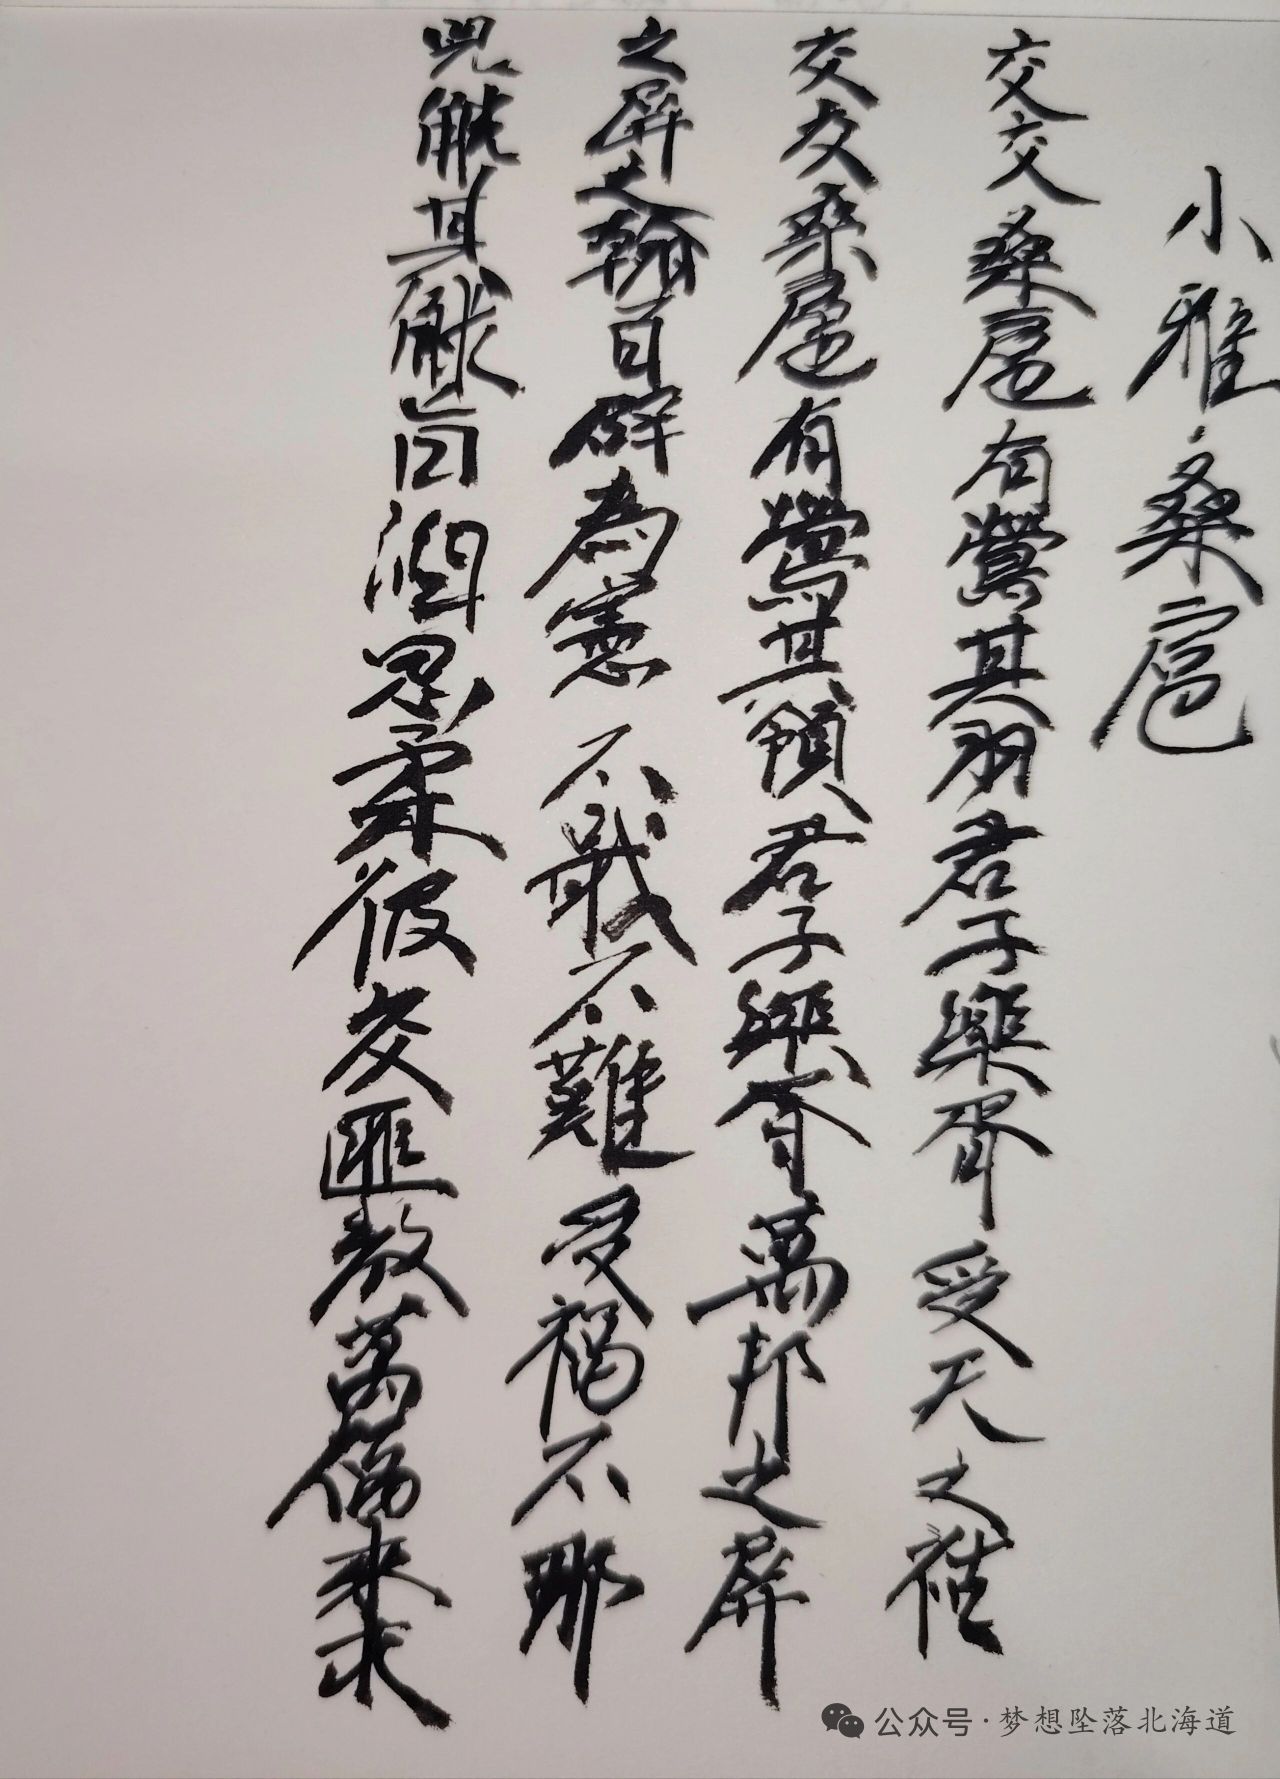 小雅·桑扈
交交桑扈有鶯其羽君子樂胥受天之祜
交交桑扈有鶯其領君子樂胥萬邦之屏
之屏之翰百辟為憲不戢不難受福不那
兕觥其觩旨酒思柔彼交匪敖萬福來求
公众号·梦想坠落北海道